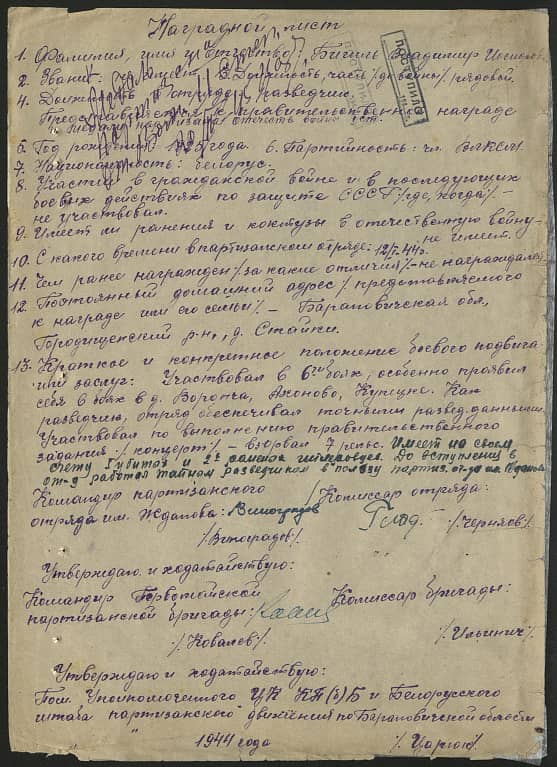 Наградной лист
1. Фамилия, имя и отчество: Владимир
2. Звание: 3. Должность, часть рядовой.
4. Должность в отряде: разведчик.
Представляется к правительственной награде
отечеств. войны ст.
5. Год рождения 1925 года. 6. Партийность: чл. ВЛКСМ.
7. Национальность: белорус.
8. Участие в гражданской войне и в последующих
боевых действиях по защите СССР /где, когда/ –
не участвовал.
9. Имеет ли ранения и контузы в отечественную войну –
не имел.
10. С какого времени в партизанском отряде: 44г.
11. Чем ранее награжден /за какие отличия/ – не награждался
12. Постоянный домашний адрес /представляемого
к награде или его семьи/ – Барановичская обл,
Городищенский р-н, д. Стайки.
13. Краткое и конкретное положение боевого подвига
или заслуг: Участвовал в 6ти боях, особенно проявил
себя в боях в д. Ворожа, Ахоново, Купецке. Как
разведчик, отряд обеспечивал точными развед.данными.
Участвовал по выполнению правительственного
задания /концерт/ – взорвал 7 рельс. Имеет на своем
счету убитых и гитлеровцев. До вступления в
от-д работал тайным разведчиком в пользу партиз.
Командир партизанского /Комиссар отряда:
отряда им. Жданова: Виноградов
/Виноградов/. /Черняев/.
Утверждаю и ходатайствую:
Командир Первомайской Комиссар бригады:
партизанской бригады:
/Ковалев/. /Ильинич/.
Утверждаю и ходатайствую:
Пом. Уполномоченного ЦК КП(б)Б и Белорусского
штаба партизанского движения по Барановичской области
1944 года